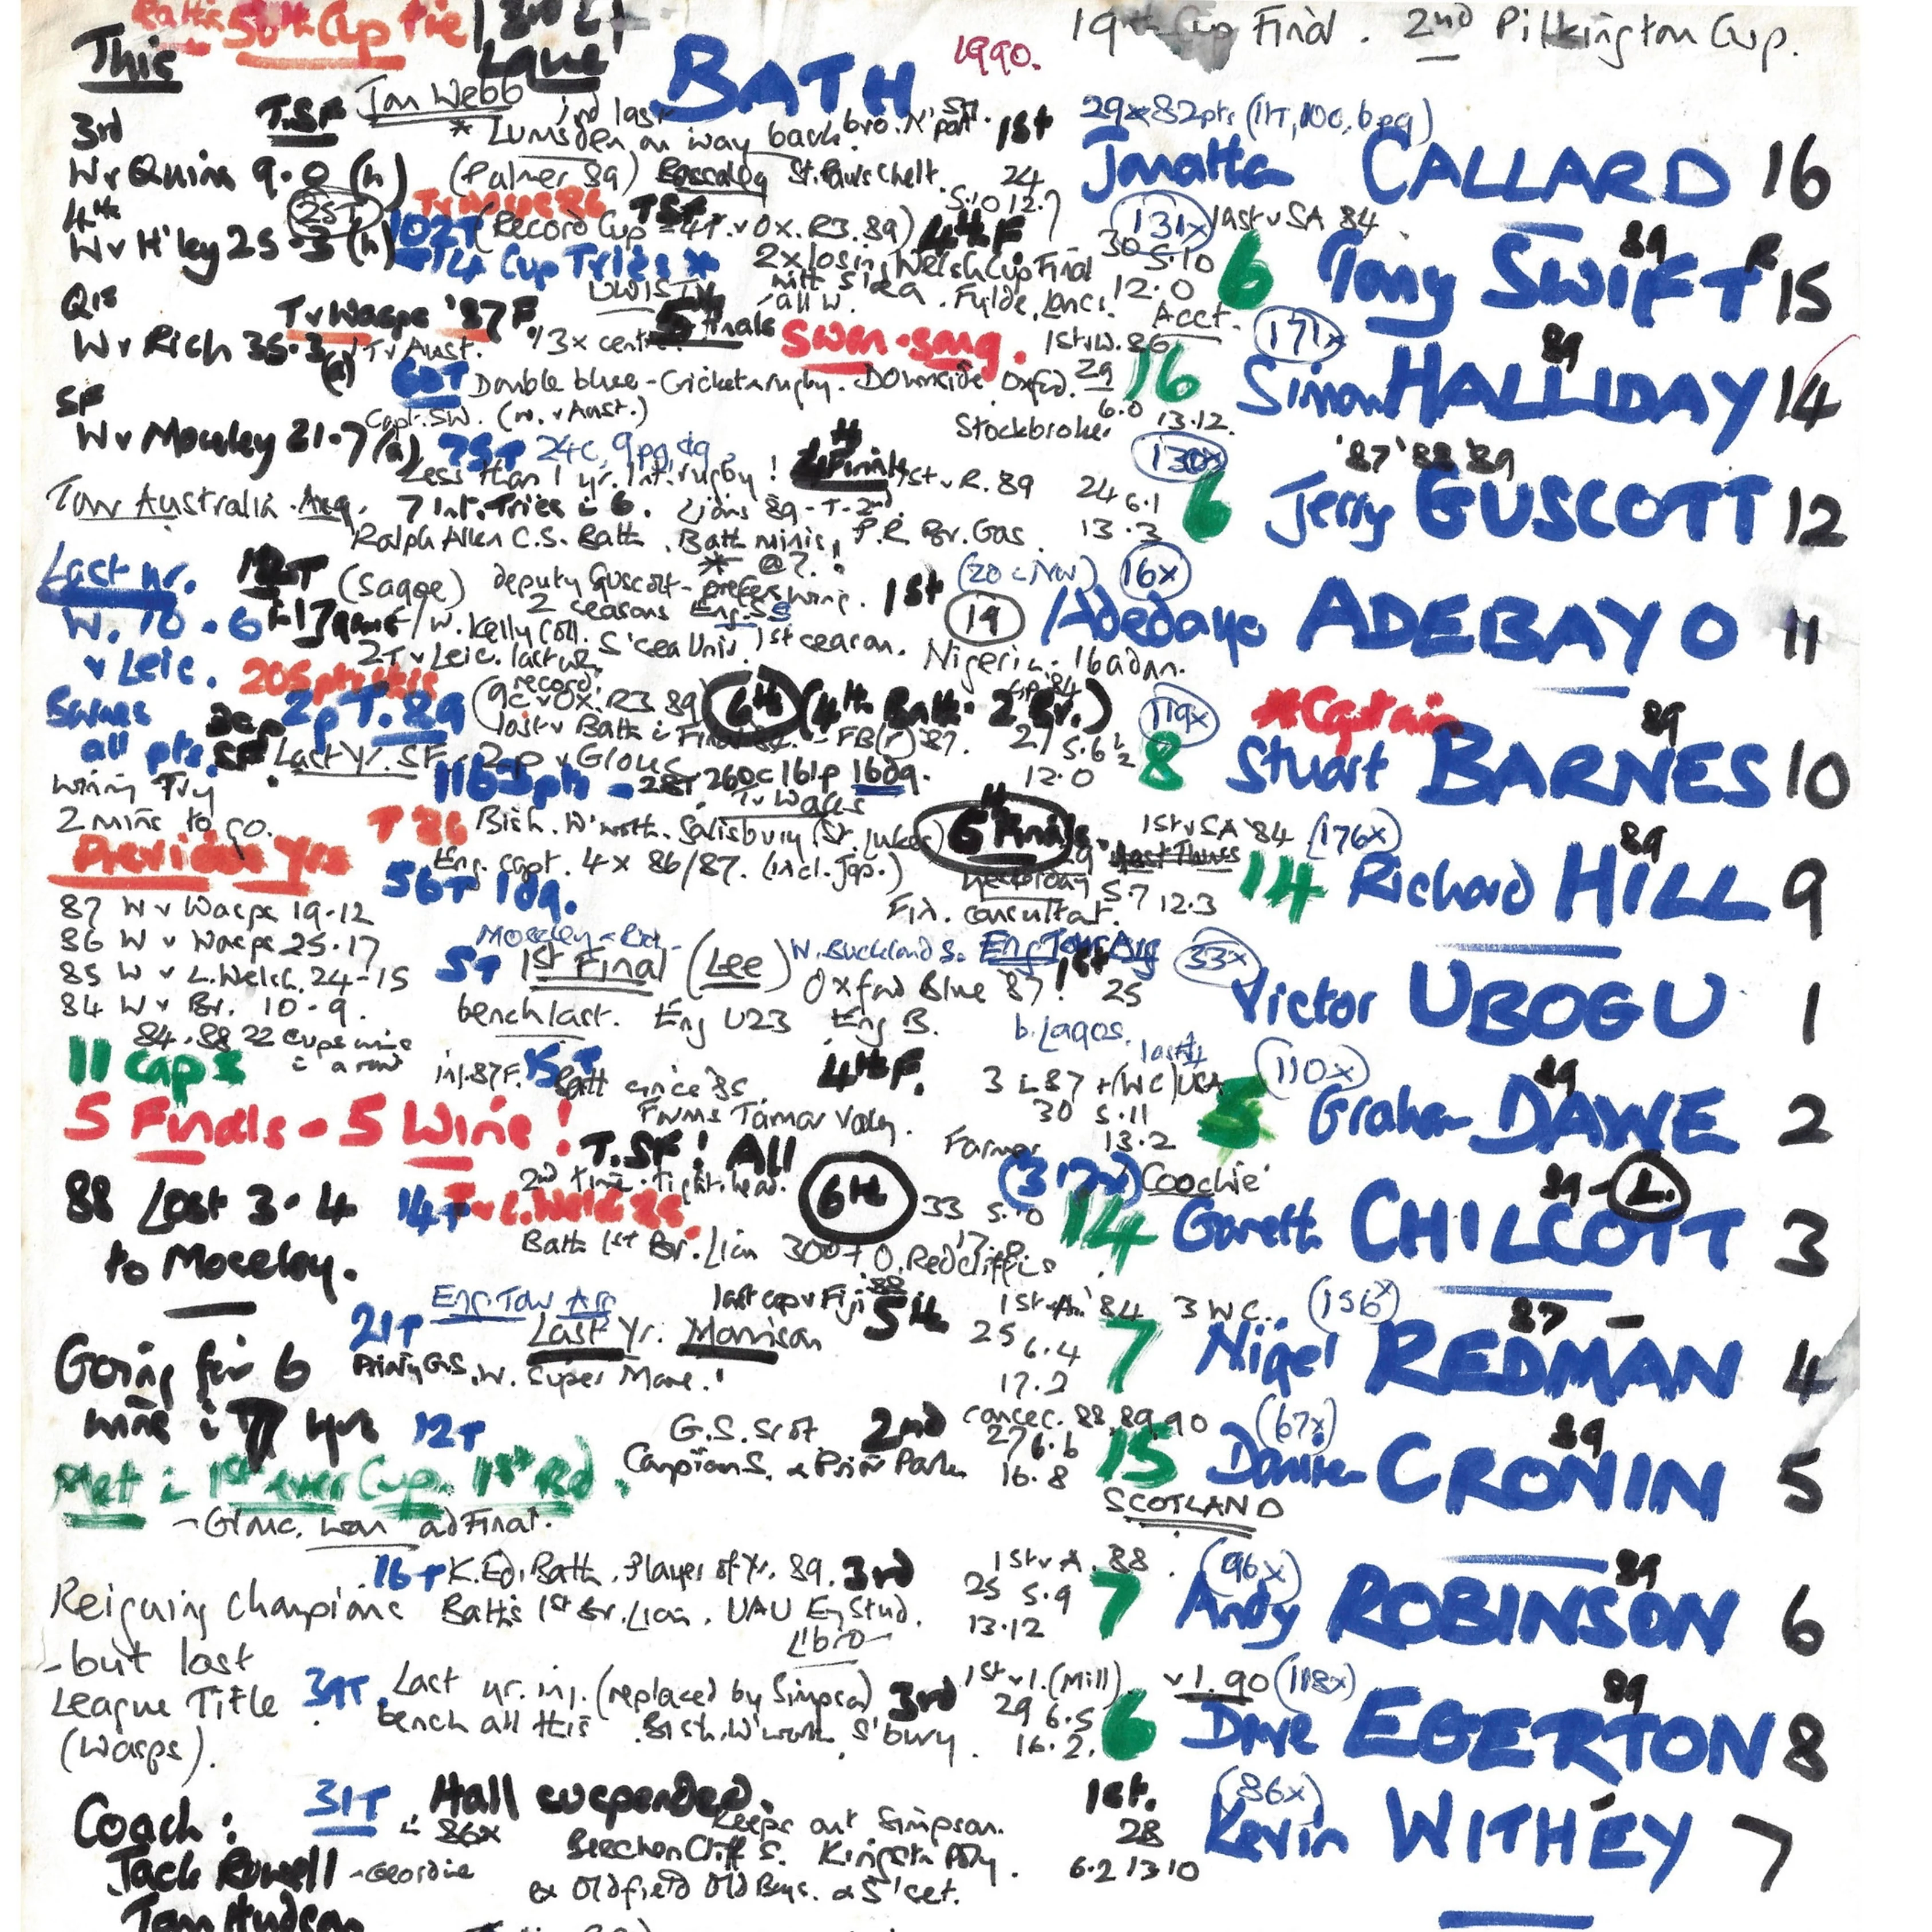 Bath's 50th Cup tie
19th Cup Final. 2nd Pilkington Cup.
This
BATH
1990.
Jon Webb
2nd last
29x 82pts (1T, 10c, 6pg)
3rd
T.SF
* Lumsden on way back.
1st
Wv Quins 9.0 (h)
(Palmer 89)
St. Pauls Chelt.
24
CALLARD 16
4th
25T
TSF
5.10 12.7
131x
last v SA 84
Wv H'ley 25.3 (h)
102T (Record Cup = 4T. v Ox. R3. 89)
4th F
30 5.10
89
=14 Cup Tries *
2x losing Welsh Cup Final
12.0
6
Tony SWIFT 15
with S'sea. Fylde, Lancs.
UWIST
all W.
Acct.
QF
T v Wasps '87F
5 Finals
Swan-song.
1st W. 86
171x
Wv Rich 35.3 (a)
T v Aust.
3x centre
89
60T
Double blue - Cricket & rugby. Downside Oxfd.
29
16
Simon HALLIDAY 14
SF
Capt. SW. (w. v Aust.)
6.0 13.12.
Wv Moseley 21-7 (a)
Stockbroker
75T 24c, 9pg, dg.
4th Final
130x
'87 '88 '89
Less than 1 yr. Int. rugby!
1st v R. 89
24 6.1
6
Jerry GUSCOTT 12
Tour Australia. Arg.
7 Int. Tries i 6. Lions 89 - T-2nd.
13.3
Ralph Allen C.S. Bath. Bath minis, P.R. Br. Gas.
* @7.
Last yr.
12T (Sagoe) deputy Guscott - prefers wing.
1st
(20 i Nov) 16x
2 seasons Eng. SS
W. 10-6
i 17 games / W. Kelly Coll. S'sea Univ. 1st season.
19
Adedayo ADEBAYO 11
v Leic.
2T v Leic. last wk.
Nigeria - Ibadan.
Swans
205 pts this
2pT. 89
record
(9c v Ox. R3. 89)
6th (4th Bath - 2 Br.)
119x
*Captain
89
all pts.
lost v Bath i Final 84. - FB(r) '87.
27 5.6½
8
Stuart BARNES 10
Last yr. SF - 2p v Glouc
12.0
wining Try
1163pts - 28T 260c 161p 16dg.
2 mins to go.
T v Wales
T 86
Bish. W'worth. Salisbury (St. Lukes)
6th Finals
1st v SA '84
176x
89
Previous Yrs
Eng. capt. 4x 86/87. (incl. Jap.)
56T 1dg.
yesterday
5.7 12.3
14
Richard HILL 9
87 W v Wasps 19-12
Fin. consultat.
86 W v Wasps 25-17
Moseley - Rich -
N. Buckland S. Eng Tour Arg
33x
85 W v L. Welsh. 24-15
5T
1st Final (Lee)
Oxford Blue '87!
1st
25
Victor UBOGU 1
84 W v Br. 10-9.
bench last. Eng U23 Eng B.
b. Lagos.
84-88 22 cups wins
i a row
11 caps
inj. 87F.
15T
Bath since '85.
4th F.
3 i 87 + (WC) USA
110x
89
5 Finals - 5 Wins!
Farms Tamar Valley.
30 5.11
5
Graham DAWE 2
Farmer
13.2
T.SF! All
2nd time. Tight head.
317x
'Coochie'
89 - L.
88 Lost 3-4
14T
T v L. Welsh 85.
6th
33 5.10
14
Gareth CHILCOTT 3
to Moseley.
Bath 1st Br. Lion 300+ O. Redcliffs
Eng. Tour Arg
last cap v Fiji 88
5th
1st A. '84
3 WC.
156x
87
21T
Last Yr. Morrison
25
6.4
7
Nigel REDMAN 4
Going for 6
Priory G.S, W. Super Mare.
17.2
wins i 7 yrs
12T
G.S. Scot.
2nd
consec. 88, 89, 90
67x
89
27 6.6
15
Damian CRONIN 5
Campion S. & Prior Park
16.8
SCOTLAND
Met i 1st ever Cup. 1st Rd.
- Glouc. won ad Final.
16T
K. Ed. Bath. Player of Yr. 89.
3rd
1st v A. 88.
96x
89
Reigning champions
Bath's 1st Br. Lion. UAU Eng Stud.
25 5.9
7
Andy ROBINSON 6
Libro
13.12
- but lost
39T.
Last yr. inj. (replaced by Simpson)
3rd
1st v I. (Mill).
v I. 90
118x
89
League Title
bench all this. Bish. W'worth S'bury.
29 6.5
6
Dave EGERTON 8
(Wasps).
16.2.
31T
Hall suspended.
1st.
86x
Coach:
i 86x
Keeps out Simpson.
28
Kevin WITHEY 7
Jack Rowell - Geordie
Beechen Cliff S. Kingston Poly.
6.2 13.10
ex Oldfield Old Boys. & S'set.
Tom Hudson